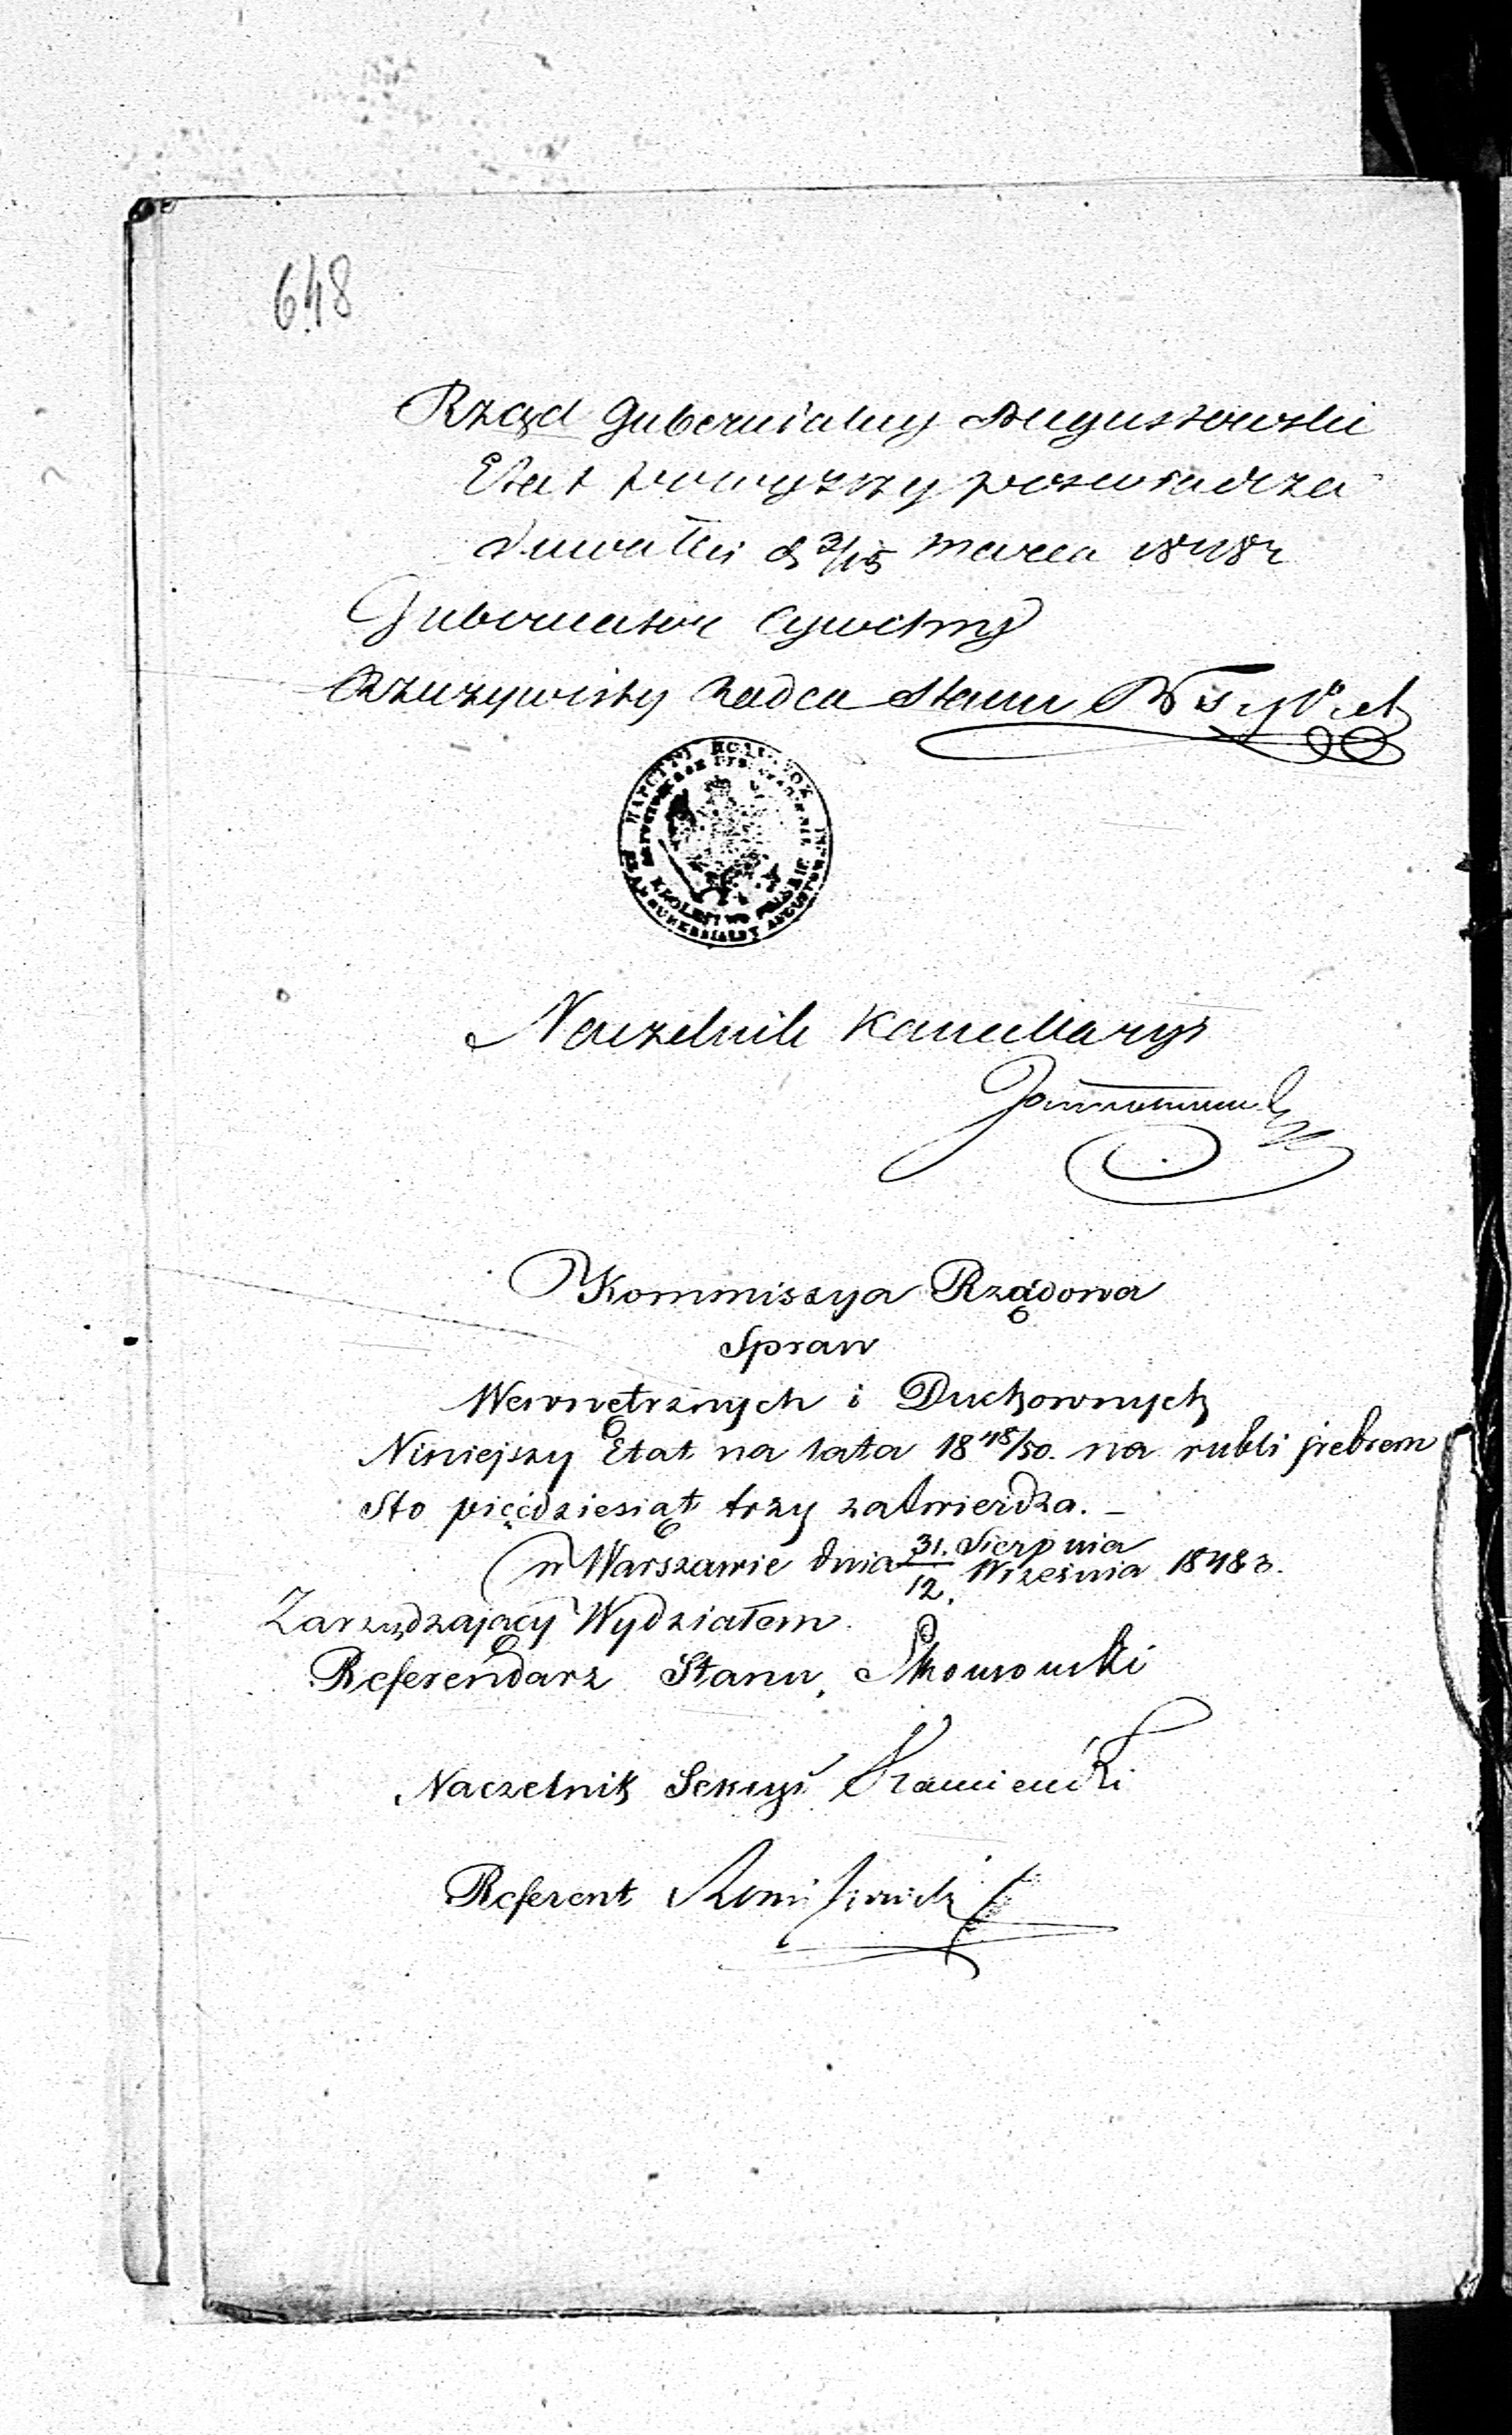 648
Rząd Gubernialny Augustowski
Etat powyższy poświadcza
Suwałki d 3/15 Marca 1848 r
Gubernator Cywilny
Rzeczywisty Radca Stanu
KRÓLESTWO POLSKIE
RZĄD GUBERNIALNY AUGUSTOWSKI
Naczelnik Kancellaryi
Kommissya Rządowa
Spraw
Wewnętrznych i Duchownych
Niniejszy Etat na lata 18 48/50. na rubli srebrem
Sto pięćdziesiąt trzy zatwierdza. –
w Warszawie dnia 31. Sierpnia / 12. Września 1848 r.
Zarządzający Wydziałem
Referendarz Stanu,
Naczelnik Sekcyi Kamieński
Referent